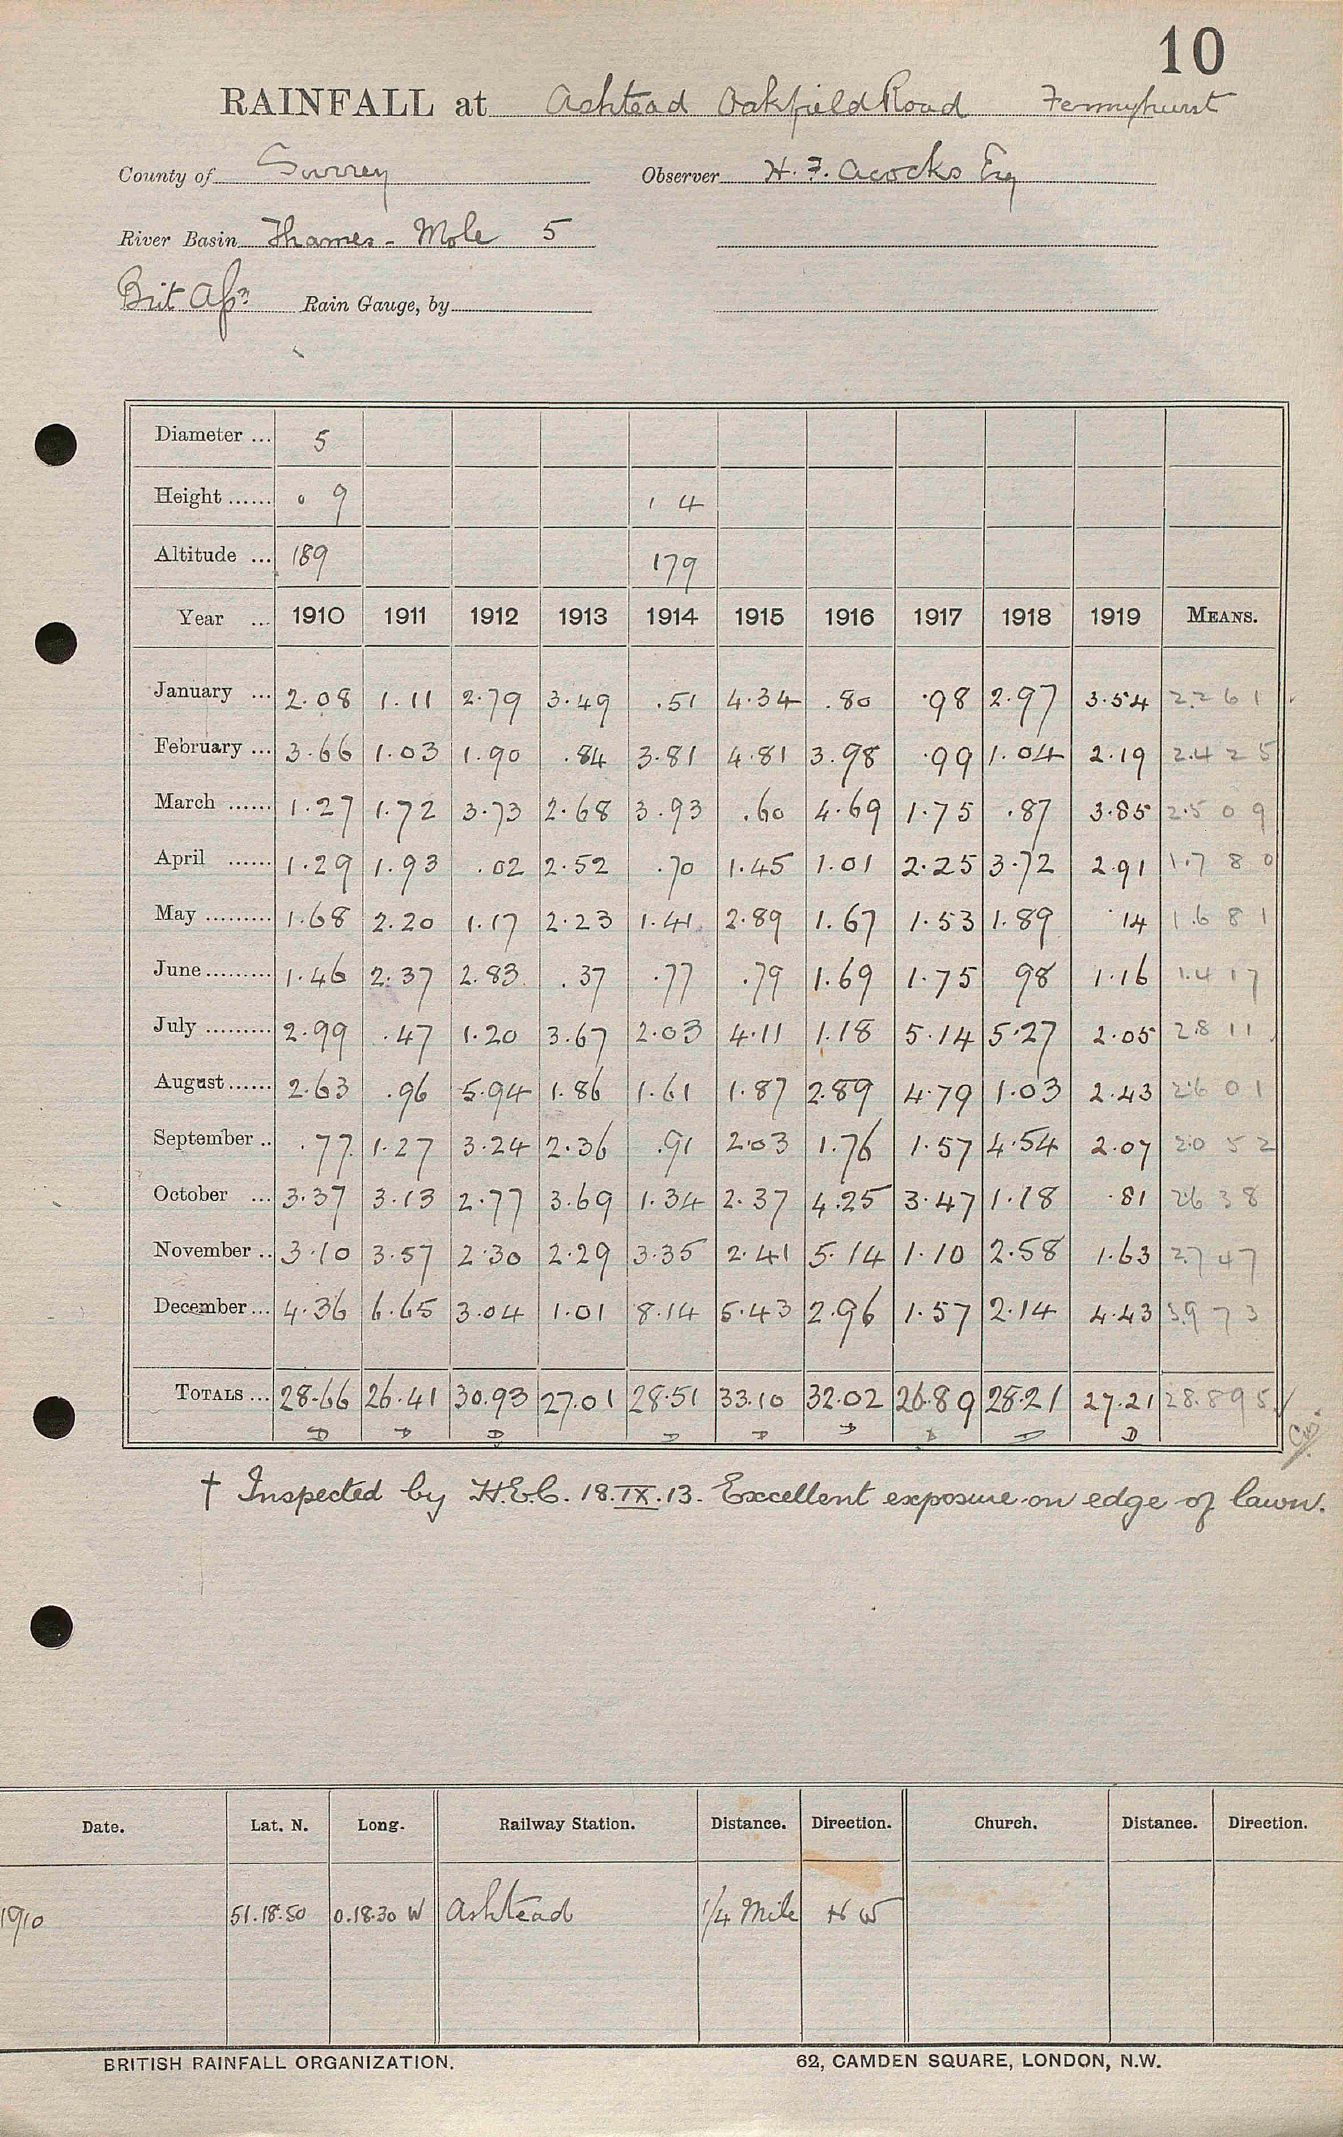 10
RAINFALL at Ashtead Oakfield Road Fernyhurst
County of Surrey Observer H. F. Acocks Esq
River Basin Thames - Mole 5
Brit Assn Rain Gauge, by
Diameter ... 5
Height ...... 0 9 1 4
Altitude ... 189 179
Year ... 1910 1911 1912 1913 1914 1915 1916 1917 1918 1919 MEANS.
January ... 2.08 1.11 2.79 3.49 .51 4.34 .80 .98 2.97 3.54 2.261
February ... 3.66 1.03 1.90 .84 3.81 4.81 3.98 .99 1.04 2.19 2.425
March ...... 1.27 1.72 3.73 2.68 3.93 .60 4.69 1.75 .87 3.85 2.509
April ...... 1.29 1.93 .02 2.52 .70 1.45 1.01 2.25 3.72 2.91 1.780
May ......... 1.68 2.20 1.17 2.23 1.41 2.89 1.67 1.53 1.89 .14 1.681
June ......... 1.46 2.37 2.83 .37 .77 .79 1.69 1.75 98 1.16 1.417
July ......... 2.99 .47 1.20 3.67 2.03 4.11 1.18 5.14 5.27 2.05 2.811
August ...... 2.63 .96 5.94 1.86 1.61 1.87 2.89 4.79 1.03 2.43 2.601
September .. .77 1.27 3.24 2.36 .91 2.03 1.76 1.57 4.54 2.07 2.052
October ... 3.37 3.13 2.77 3.69 1.34 2.37 4.25 3.47 1.18 .81 2.638
November .. 3.10 3.57 2.30 2.29 3.35 2.41 5.14 1.10 2.58 1.63 2.747
December ... 4.36 6.65 3.04 1.01 8.14 5.43 2.96 1.57 2.14 4.43 3.973
TOTALS ... 28.66 26.41 30.93 27.01 28.51 33.10 32.02 26.89 28.21 27.21 28.895
D D D D D D D D D
† Inspected by H.E.C. 18.IX.13. Excellent exposure on edge of lawn.
Date. Lat. N. Long. Railway Station. Distance. Direction. Church. Distance. Direction.
1910 51.18.50 0.18.30 W Ashtead 1/4 Mile N W
BRITISH RAINFALL ORGANIZATION. 62, CAMDEN SQUARE, LONDON, N.W.